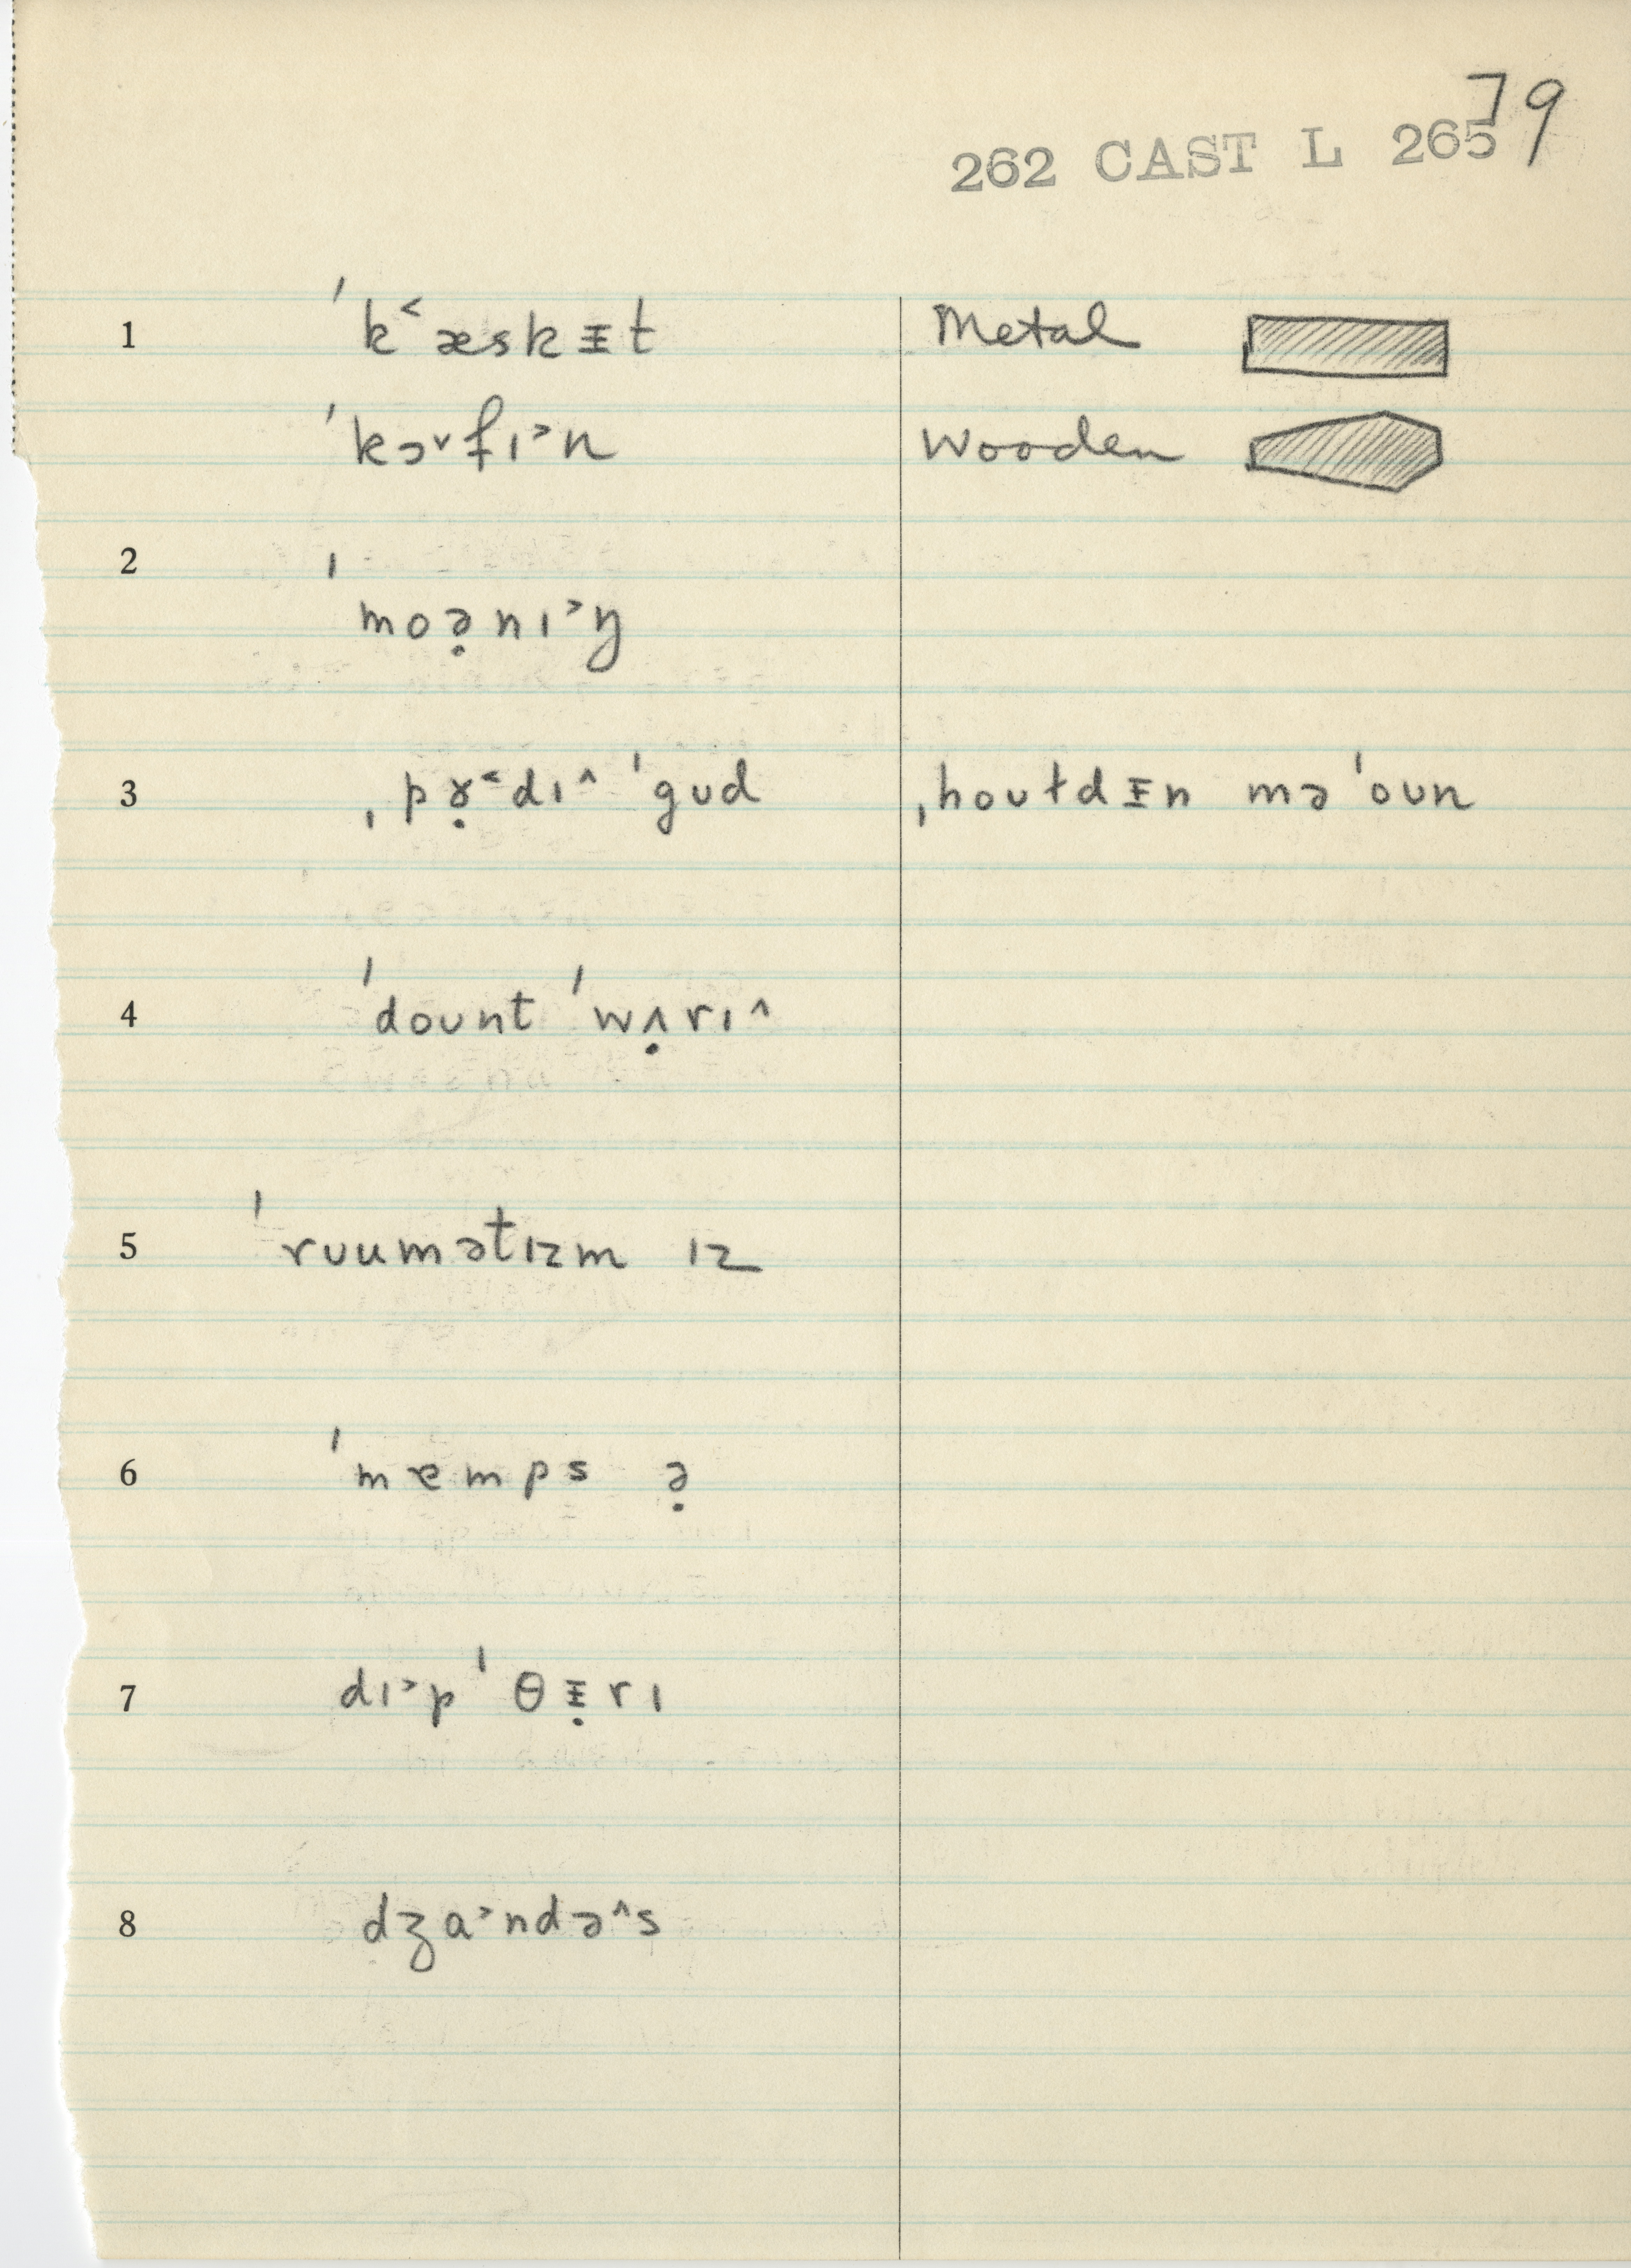 79
262 CAST L 265
1 ˈk˂æskᵻt Metal
ˈkɔ˅fɪ˃n Wooden
2 ˈmoə̣nɪ˃ŋ
3 ˌpɤ̣˂dɪ˄ ˈgʊd ˌhoʊɫdᵻn mə ˈoʊn
4 ˈdoʊnt ˈwʌ̣rɪ˄
5 ˈrʊumətɪzm ɪz
6 ˈmɐmps ə̣
7 dɪ˃pˈθᵻ̣rɪ
8 dʒɑ˃ndə˄s